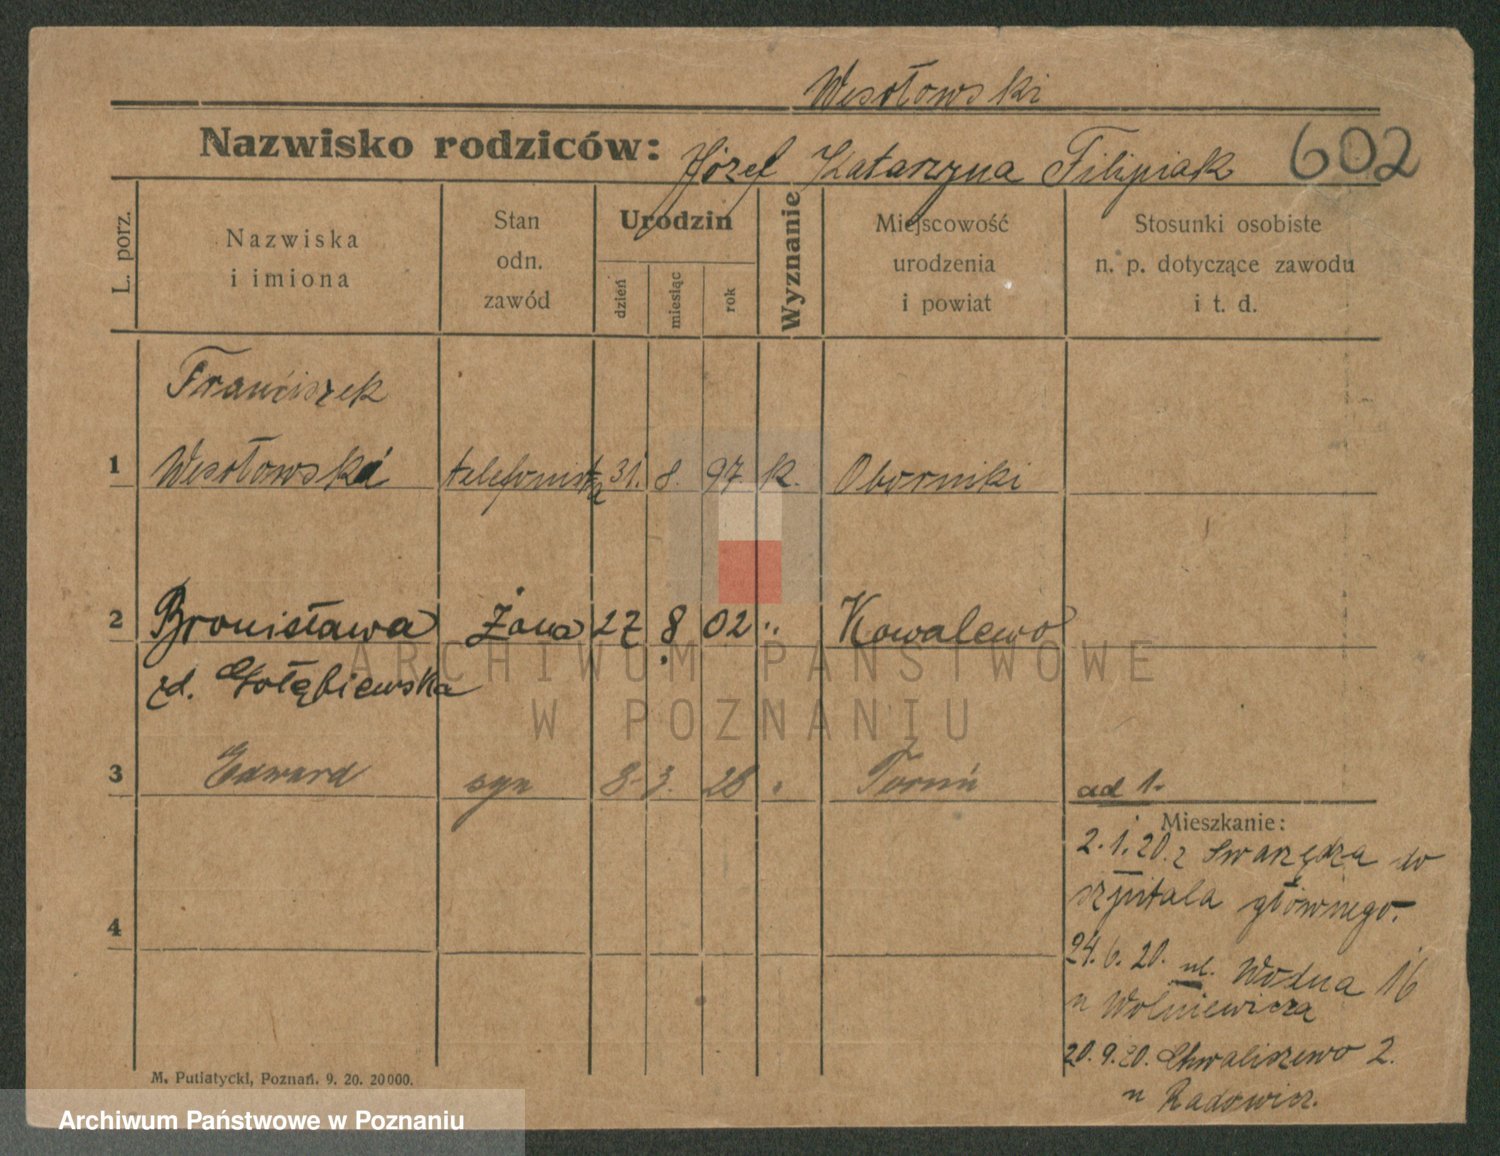 Wesołowski
Nazwisko rodziców: Józef Katarzyna Filipiak 602
L. porz.
Nazwiska
i imiona
Stan
odn.
zawód
Urodzin
dzień
miesiąc
rok
Wyznanie
Miejscowość
urodzenia
i powiat
Stosunki osobiste
n. p. dotyczące zawodu
i t. d.
Franciszek
1 Wesołowski telefonista 31. 8. 97. k. Oborniki
2 Bronisława żona 27 8 02 " Kowalewo
zd. Gołębiewska
3 Edward syn 8. 3. 28 " Toruń
ad 1.
Mieszkanie:
2.1.20. z Swarzędza do
szpitala głównego.
4
24.6.20. ul. Wodna 16
u Wolniewicza
20.9.20. Chwaliszewo 2.
u Radowicz.
M. Putiatycki, Poznań. 9. 20. 20000.
ARCHIWUM PAŃSTWOWE
W POZNANIU
Archiwum Państwowe w Poznaniu